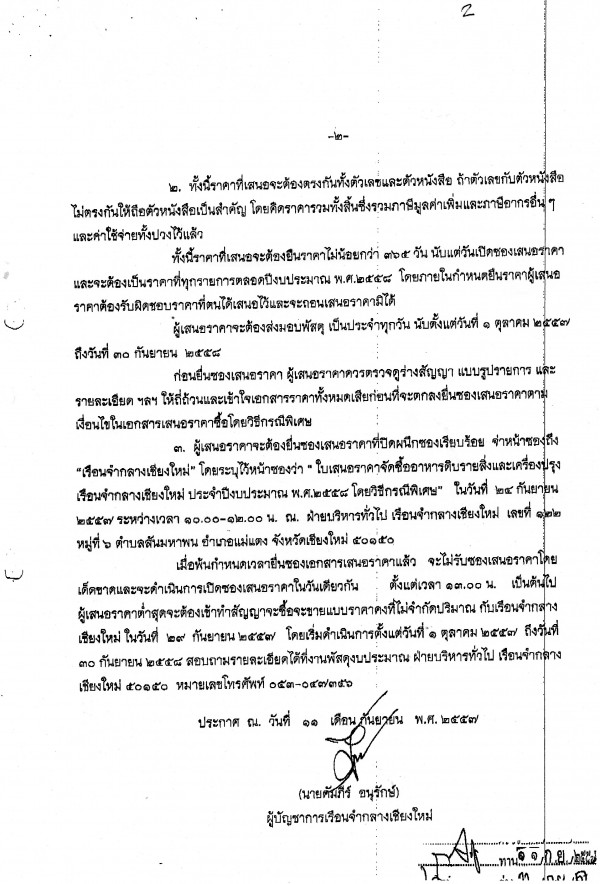 2
-๒-
๒. ทั้งนี้ราคาที่เสนอจะต้องตรงกันทั้งตัวเลขและตัวหนังสือ ถ้าตัวเลขกับตัวหนังสือ
ไม่ตรงกันให้ถือตัวหนังสือเป็นสำคัญ โดยคิดราคารวมทั้งสิ้นซึ่งรวมภาษีมูลค่าเพิ่มและภาษีอากรอื่น ๆ
และค่าใช้จ่ายทั้งปวงไว้แล้ว
ทั้งนี้ราคาที่เสนอจะต้องยืนราคาไม่น้อยกว่า ๓๖๕ วัน นับแต่วันเปิดซองเสนอราคา
และจะต้องเป็นราคาที่ทุกรายการตลอดปีงบประมาณ พ.ศ.๒๕๕๘ โดยภายในกำหนดยืนราคาผู้เสนอ
ราคาต้องรับผิดชอบราคาที่ตนได้เสนอไว้และจะถอนเสนอราคามิได้
ผู้เสนอราคาจะต้องส่งมอบพัสดุ เป็นประจำทุกวัน นับตั้งแต่วันที่ ๑ ตุลาคม ๒๕๕๗
ถึงวันที่ ๓๐ กันยายน ๒๕๕๘
ก่อนยื่นซองเสนอราคา ผู้เสนอราคาควรตรวจดูร่างสัญญา แบบรูปรายการ และ
รายละเอียด ฯลฯ ให้ถี่ถ้วนและเข้าใจเอกสารราคาทั้งหมดเสียก่อนที่จะตกลงยื่นซองเสนอราคาตาม
เงื่อนไขในเอกสารเสนอราคาซื้อโดยวิธีกรณีพิเศษ
๓. ผู้เสนอราคาจะต้องยื่นซองเสนอราคาที่ปิดผนึกซองเรียบร้อย จ่าหน้าซองถึง
"เรือนจำกลางเชียงใหม่" โดยระบุไว้หน้าซองว่า " ใบเสนอราคาจัดซื้ออาหารดิบรายสิ่งและเครื่องปรุง
เรือนจำกลางเชียงใหม่ ประจำปีงบประมาณ พ.ศ.๒๕๕๘ โดยวิธีกรณีพิเศษ" ในวันที่ ๒๔ กันยายน
๒๕๕๗ ระหว่างเวลา ๑๐.๐๐-๑๒.๐๐ น. ณ. ฝ่ายบริหารทั่วไป เรือนจำกลางเชียงใหม่ เลขที่ ๑๒๒
หมู่ที่ ๖ ตำบลสันมหาพน อำเภอแม่แตง จังหวัดเชียงใหม่ ๕๐๑๕๐
เมื่อพ้นกำหนดเวลายื่นซองเอกสารเสนอราคาแล้ว จะไม่รับซองเสนอราคาโดย
เด็ดขาดและจะดำเนินการเปิดซองเสนอราคาในวันเดียวกัน ตั้งแต่เวลา ๑๓.๐๐ น. เป็นต้นไป
ผู้เสนอราคาต่ำสุดจะต้องเข้าทำสัญญาจะซื้อจะขายแบบราคาคงที่ไม่จำกัดปริมาณ กับเรือนจำกลาง
เชียงใหม่ ในวันที่ ๒๙ กันยายน ๒๕๕๗ โดยเริ่มดำเนินการตั้งแต่วันที่ ๑ ตุลาคม ๒๕๕๗ ถึงวันที่
๓๐ กันยายน ๒๕๕๘ สอบถามรายละเอียดได้ที่งานพัสดุงบประมาณ ฝ่ายบริหารทั่วไป เรือนจำกลาง
เชียงใหม่ ๕๐๑๕๐ หมายเลขโทรศัพท์ ๐๕๓-๐๔๗๓๕๖
ประกาศ ณ. วันที่ ๑๑ เดือน กันยายน พ.ศ. ๒๕๕๗
(นายคัมภีร์ อนุรักษ์)
ผู้บัญชาการเรือนจำกลางเชียงใหม่
ทาน ก.ย.